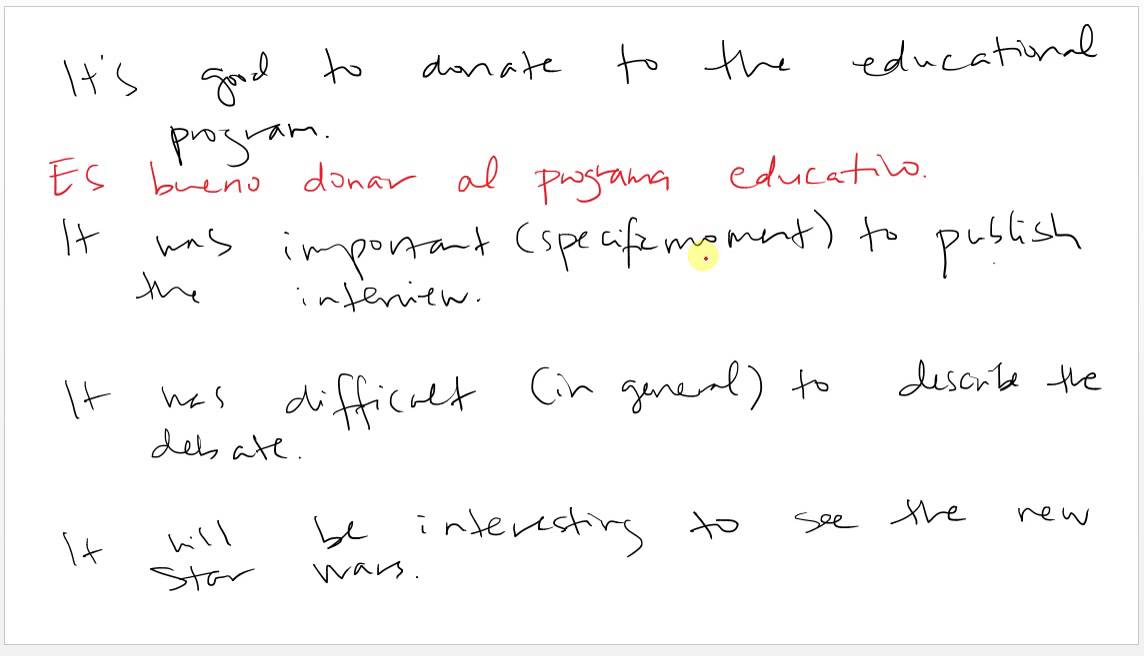 It's good to donate to the educational
program.
Es bueno donar al programa educativo.
It was important (specific moment) to publish
the interview.
It was difficult (in general) to describe the
debate.
It will be interesting to see the new
Star Wars.